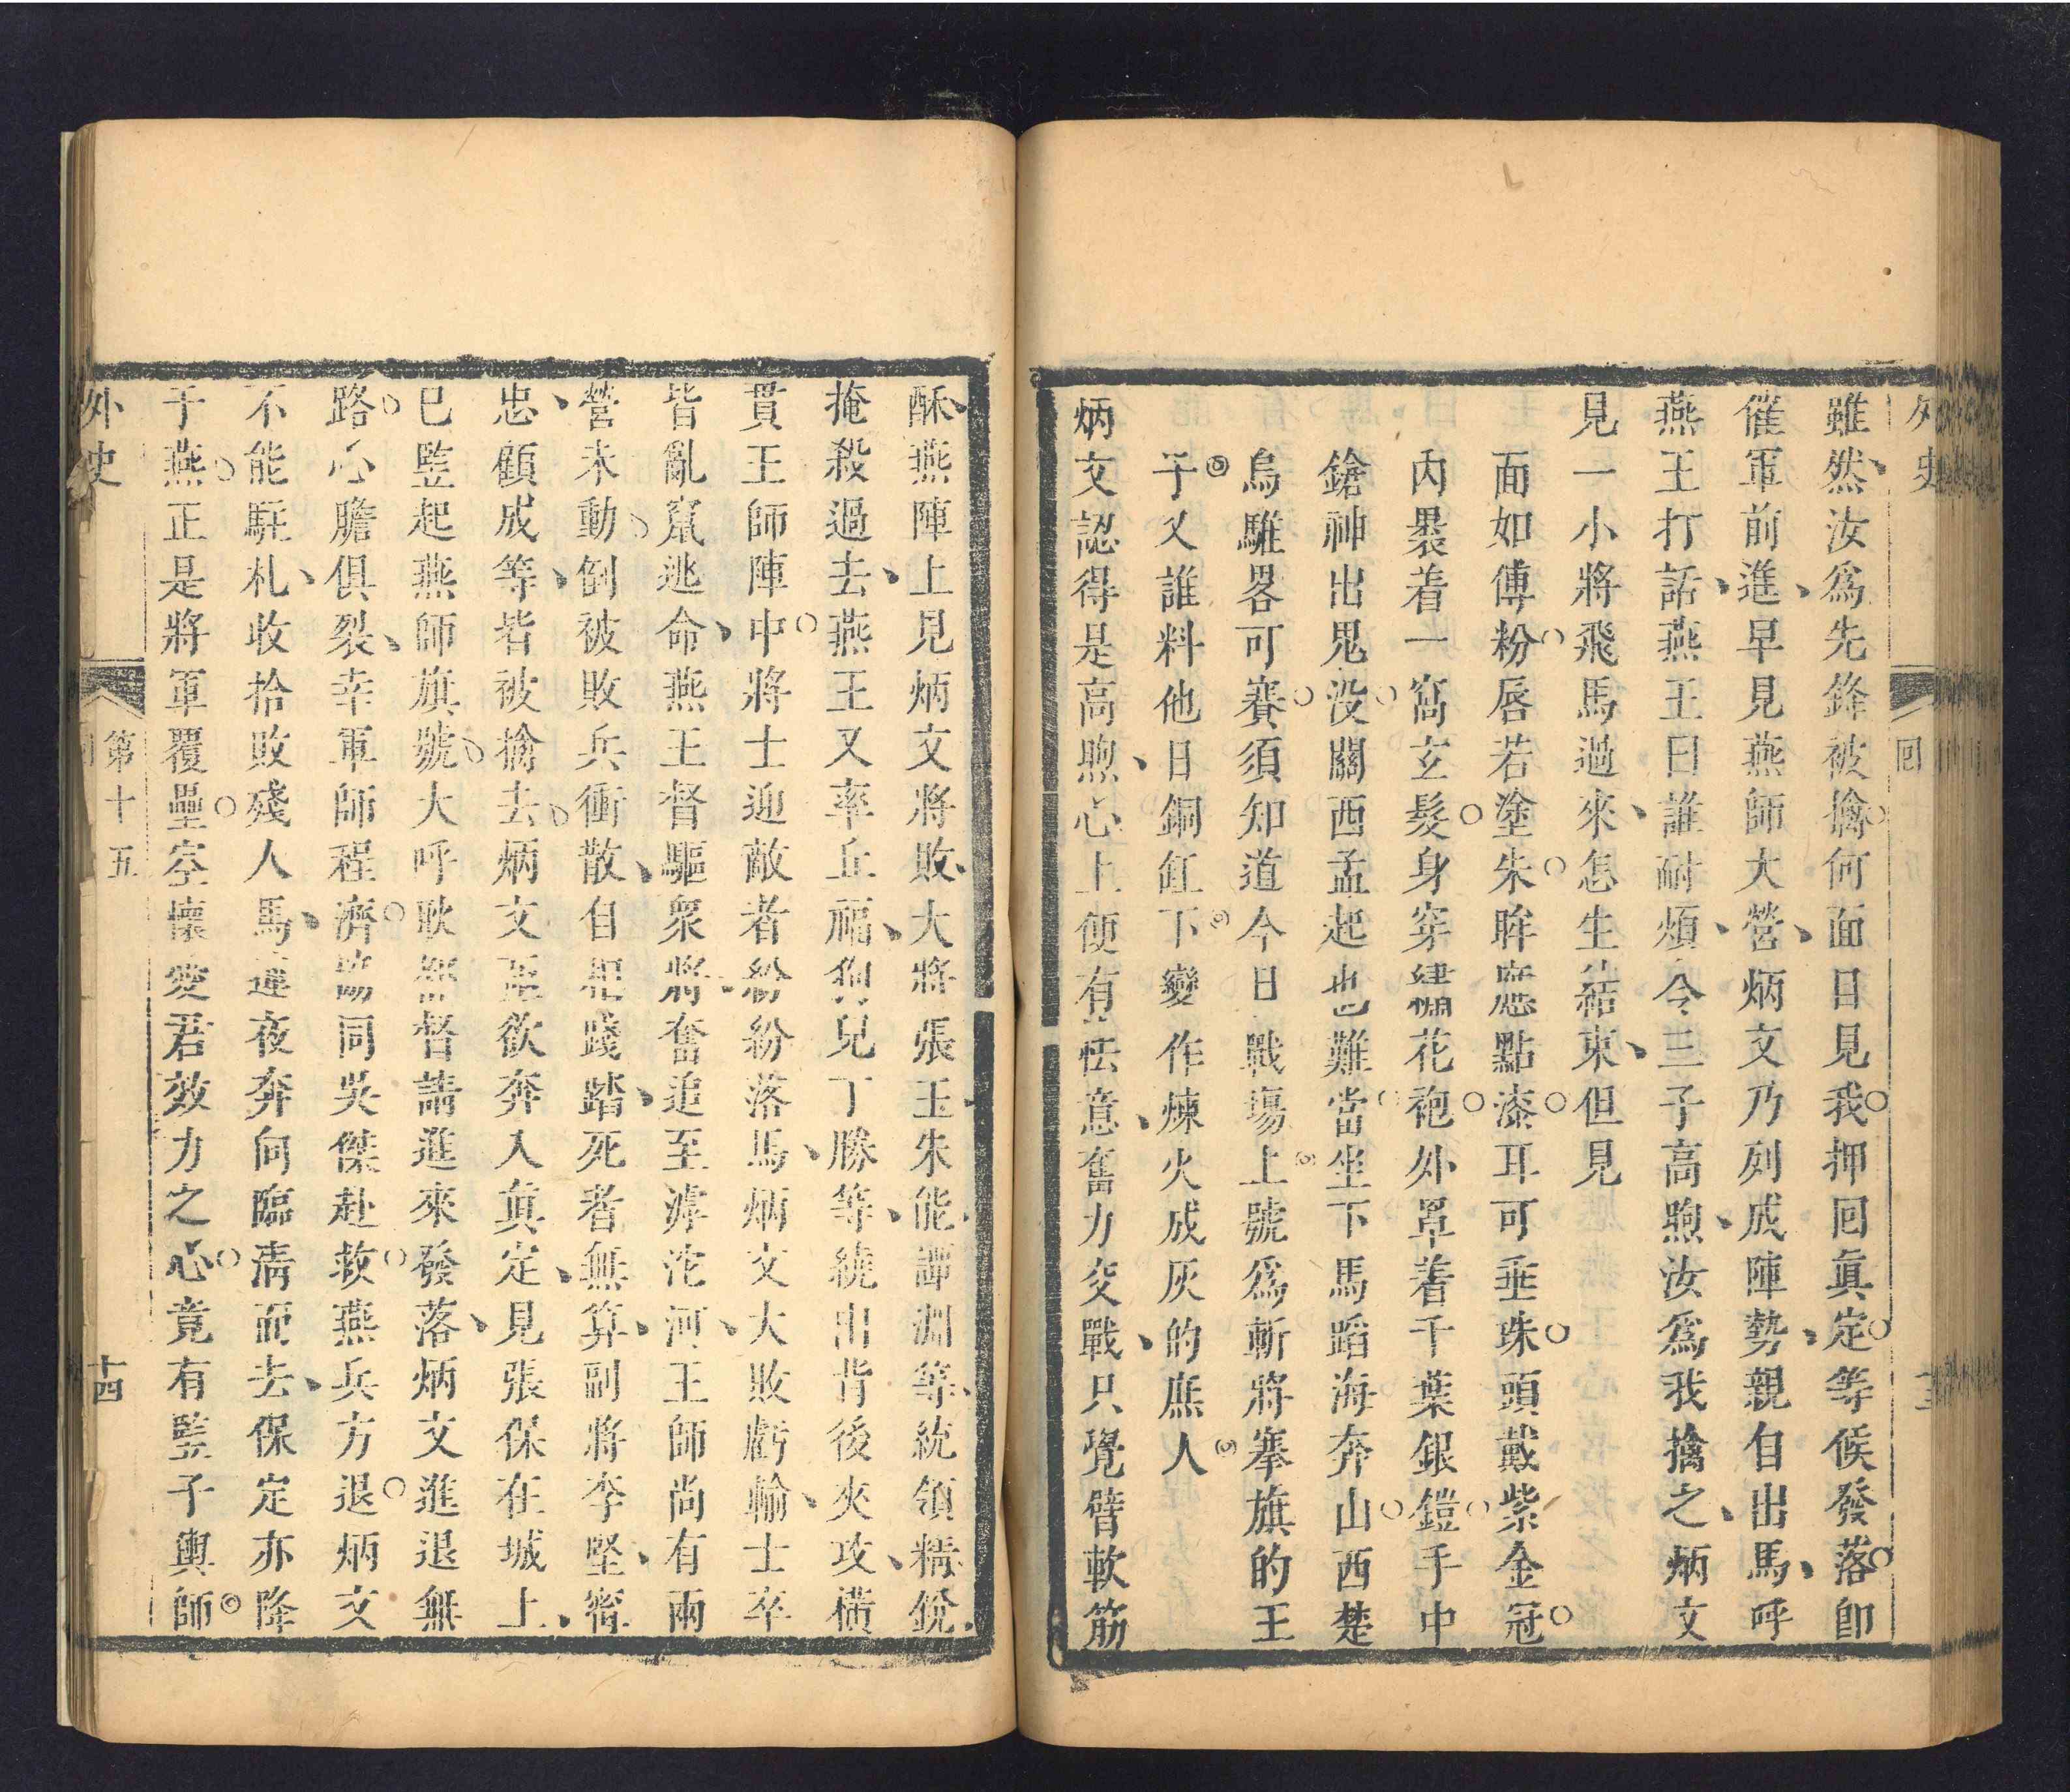 外史
回
雖然汝爲先鋒被擒何面目見我押囘眞定等候發落卽
催軍前進早見燕師大營炳文乃列成陣勢親自出馬呼
燕王打話燕王曰誰耐煩令三子高煦汝爲我擒之炳文
見一小將飛馬過來怎生結束但見
面如傅粉唇若塗朱眸應點漆耳可垂珠頭戴紫金冠
內裹着一窩玄髮身穿繡花袍外罩着千葉銀鎧手中
鎗神出鬼没關西孟起也難當坐下馬蹈海奔山西楚
烏騅畧可賽須知道今日戰塲上號爲斬將搴旗的王
子又誰料他日銅缸下變作煉火成灰的庶人
炳文認得是高煦心上便有怯意奮力交戰只覺臂軟筋
酥燕陣上見炳文將敗大將張玉朱能譚淵等統領精銳
掩殺過去燕王又率丘福狗兒丁勝等繞出背後夾攻橫
貫王師陣中將士迎敵者紛紛落馬炳文大敗虧輸士卒
皆亂竄逃命燕王督驅衆將奮追至滹沱河王師尚有兩
營未動倒被敗兵衝散自相踐踏死者無算副將李堅甯
忠顧成等皆被擒去炳文至欲奔入眞定見張保在城上
已竪起燕師旗號大呼耿都督請進來發落炳文進退無
路心膽俱裂幸軍師程濟協同吳傑赴救燕兵方退炳文
不能駐札收拾敗殘人馬連夜奔向臨清而去保定亦降
于燕正是將軍覆壘空懷愛君效力之心竟有竪子輿師
外史
第十五
十四